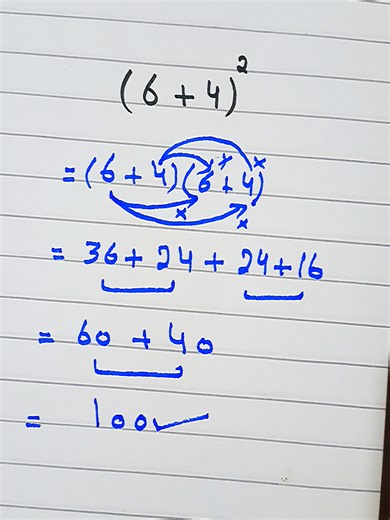 (6 + 4)²
= (6 + 4)(6 + 4)
= 36 + 24 + 24 + 16
= 60 + 40
= 100 ✓